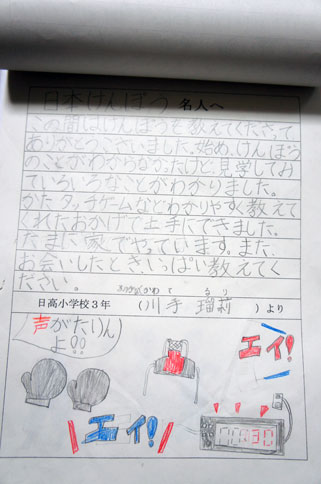 日本けんぽう 名人へ
この間はけんぽうを教えてくださって
ありがとうございました。始め、けんぽう
のことがわからなかったけど、見学してみ
ていろいろなことがわかりました。
かたタッチゲームなどわかりやすく教えて
くれたおかげで上手にできました。
たまに家でやっています。また、
お会いしたとき、いっぱい教えてく
ださい。
日高小学校3年 (川手 瑠莉 )より
声がたりん
よ!!
エイ!
エイ!
:30